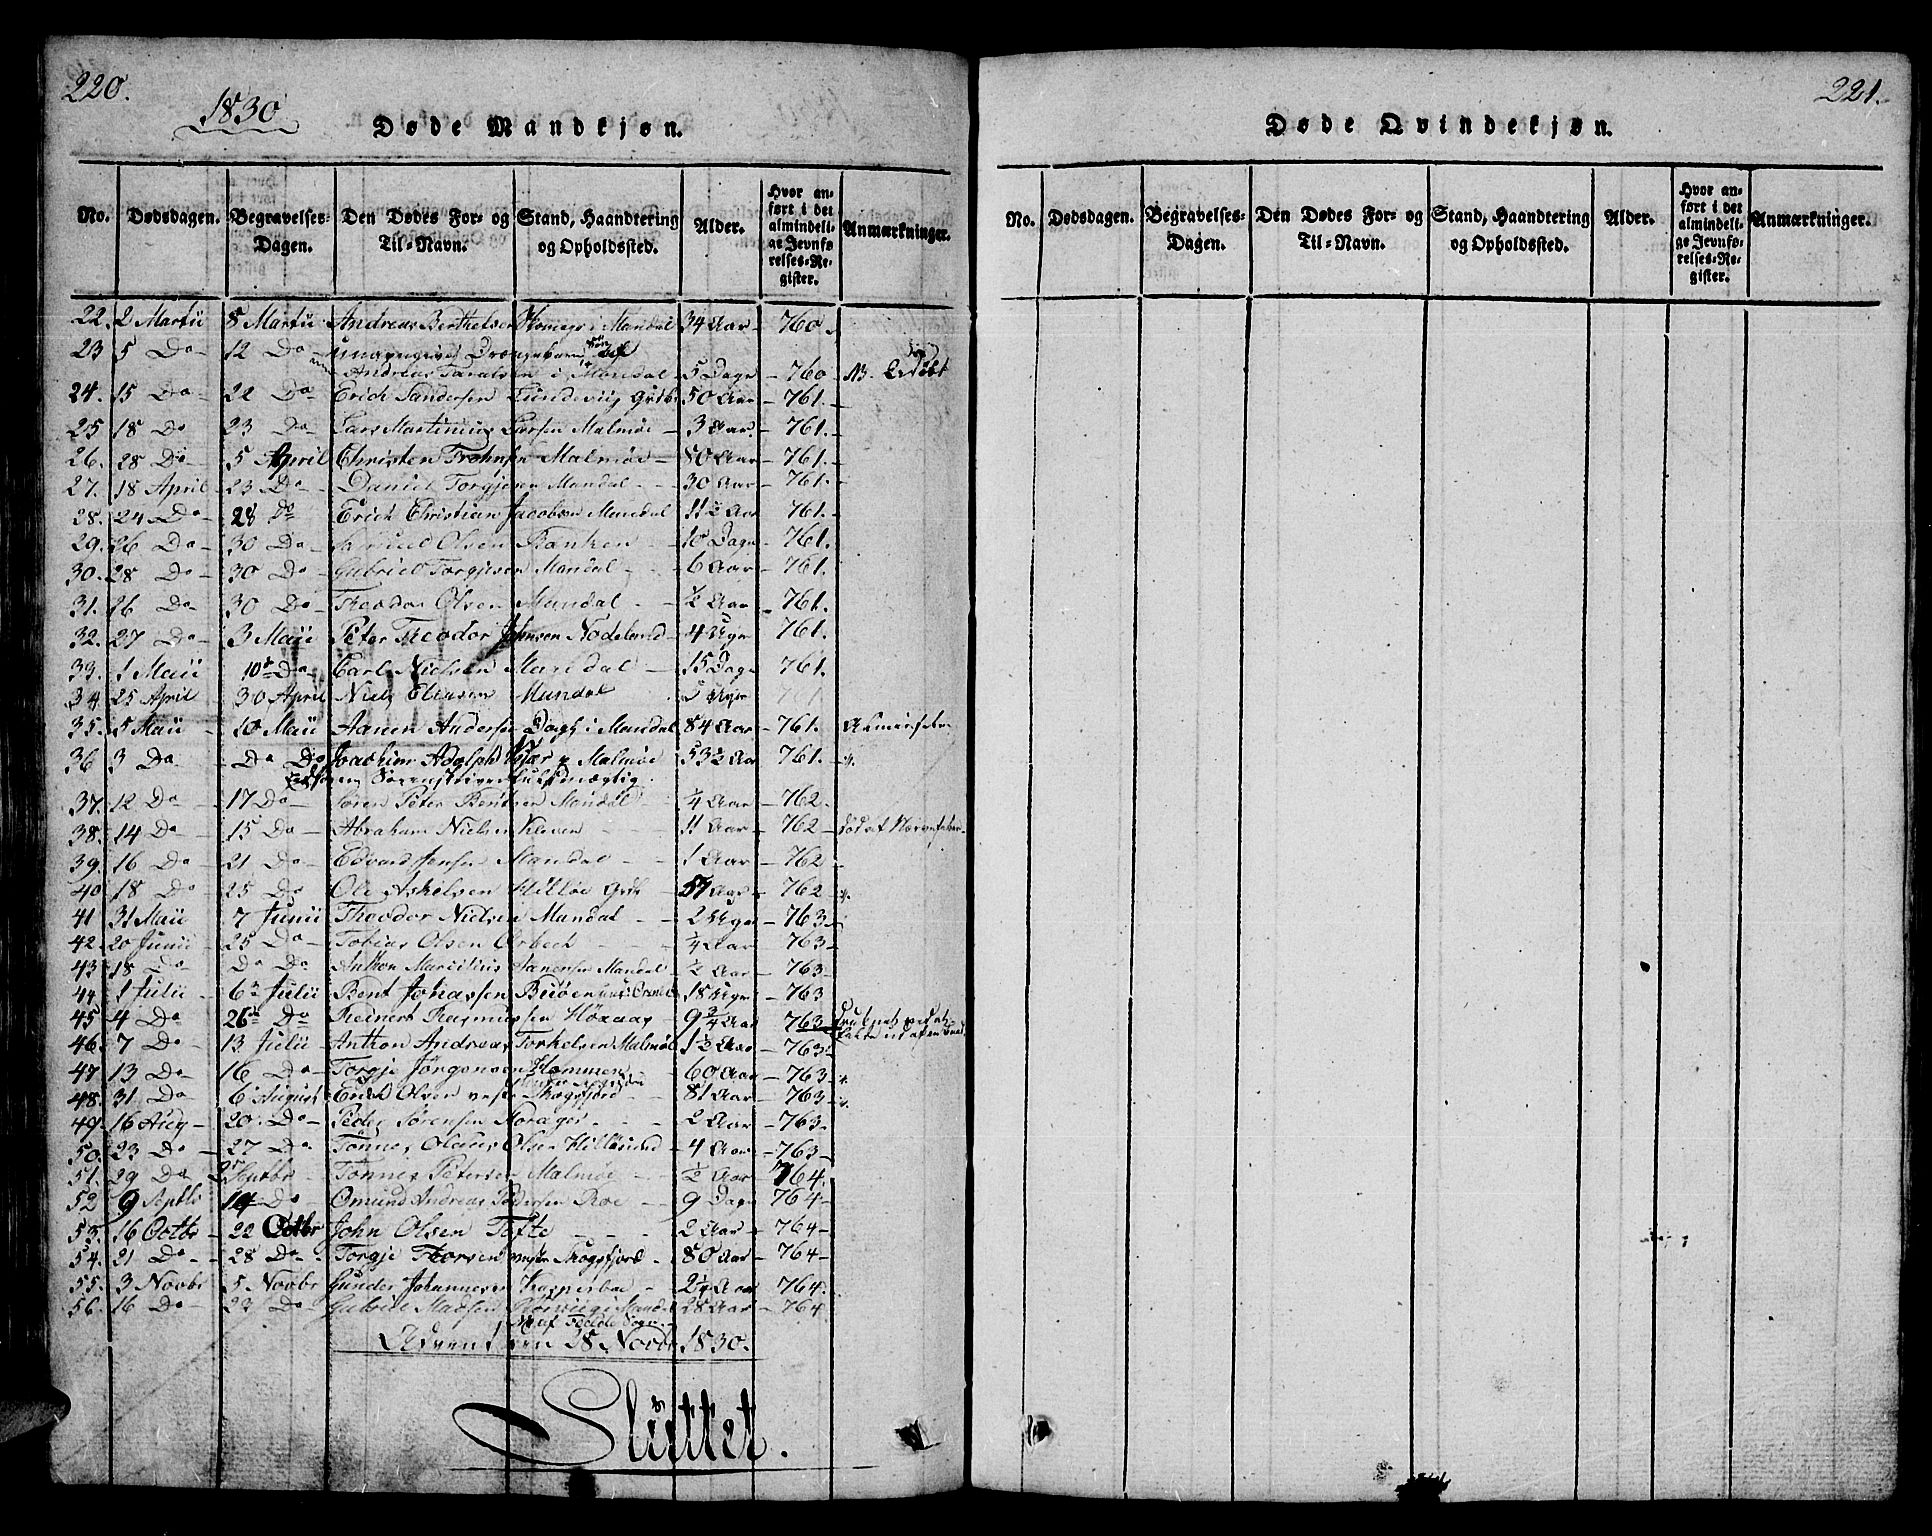 220.
1830
Døde Mandkjøn.
No. Dødsdagen. Begravelses-Dagen. Den Dødes For- og Til-Navn. Stand, Haandtering og Opholdssted. Alder. Hvor anført i det almindelige Jevnførelses-Register. Anmærkninger.
22. 2 Martii 8 Martii Andreas Berthelsen i Mandal 34 Aar 760.
23 5 Do 12 Do unavngivet Drengebarn af
Andreas Taralsen i Mandal 5 Dage 760 NB.
24. 15 Do 22 Do Erich Sandersen Lundeviig 50 Aar 761.
25 18 Do 23 Do Lars Martinius Larsen Malmøe 3 Aar 761.
26. 28 Do 5 April Christen Trohnsen Malmøe 80 Aar 761.
27. 18 April 23 Do Daniel Torgjesen Mandal 30 Aar 761.
28. 24 Do 28 Do Erich Christian Jacobsen Mandal 11 ½ Aar 761.
29. 26 Do 30 Do Samuel Olsen Banken 10 Dage 761.
30. 28 Do 30 Do Gabriel Torgjesen Mandal 6 Aar 761.
31. 26 Do 30 Do Theodor Olsen Mandal ½ Aar 761.
32. 27 Do 3 Maii Peter Theodor Johnsen Nodeland 4 Uger 761.
33. 1 Maii 10de Do Carl Nielsen Mandal 15 Dage 761.
34 25 April 30 April Niels Eliasen Mandal Uger 761
35. 5 Maii 10 Maii Aanen Andersen i Mandal 84 Aar 761.
36 3 Do Do Do Joachim Adolph Kjær Malmøe 53 ½ Aar 761.
Sorenskriver fuldmægtig.
37. 12 Do 17 Do Søren Peter Bentsen Mandal ¼ Aar 762.
38. 14 Do 15 Do Abraham Nielsen Kleven 11 Aar 762 død af Nervefeber
39. 16 Do 21 Do Edvard Jensen Mandal 1 Aar 762
40. 18 Do 25 Do Ole Askelsen Hilløe 57 Aar 762
41 31 Maii 7 Junii Theodor Nielsen Mandal 2 Uger 763
42. 20 Junii 25 Do Tobias Olsen Orbech ¼ Aar 763
43 18 Do Do Do Anthon Marcilius Aanensen Mandal ½ Aar 763
44 1 Julii 6te Julii Bent Johassen Buøen 18 Uger 763
45 4 Do 26de Do Reinert Rasmussen Høxaas 9 ¾ Aar 763
46. 7 Do 13 Julii Anthon Andreas Torkelsen Malmøe 1 ½ Aar 763
47 13 Do 16 Do Torgje Jørgensen Hommen 60 Aar 763
48. 31 Do 6 August Erich Olsen vestre Skogsfjord 81 Aar 763
49. 16 Aug 20 Do Peder Sørensen 2 Aar 763
50. 23 Do 27 Do Tønnes Olaus Olsen Hillesund 4 Aar 763
51. 29 Do 2 Septbr Tønnes Petersen Malmøe ½ Aar 764.
52 9 Septb 14 Do Omund Andreas Pedersen Roe 9 Dage 764
53. 16 Octbr 22 Octbr John Olsen Tofte 2 Aar 764
54. 21 Do 28 Do Torgje Thorsen vestre Skogsfjord 80 Aar 764
55. 3 Novbr 5 Novbr Gunder Johannesen 2 ¼ Aar 764.
56. 16 Do 23 Do Gabriel Madsen i Mandal 28 Aar 764
af Sogn.
Advent den 28 Novbr 1830.
Sluttet.
221.
Døde Qvindekjøn.
No. Dødsdagen. Begravelses-Dagen. Den Dødes For- og Til-Navn. Stand, Haandtering og Opholdssted. Alder. Hvor anført i det almindelige Jevnførelses-Register. Anmærkninger.